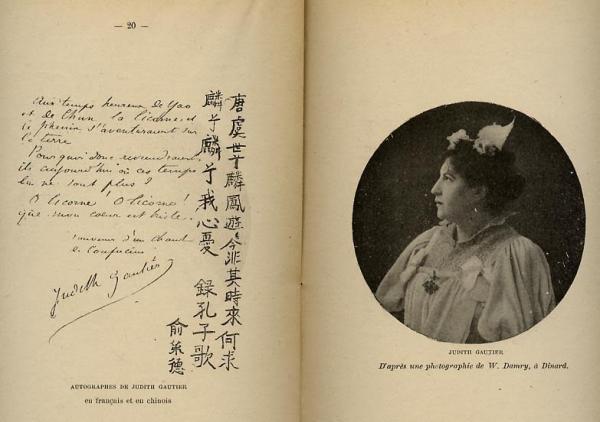 — 20 —
Aux temps heureux de Yao
et de Chun la licorne et
le phénix s'aventuraient sur
la terre
Pourquoi donc reviendraient
ils aujourd'hui où ces temps
là ne sont plus ?
O licorne ! O licorne !
que mon cœur est triste.
souvenir d'un chant
de Confucius
Judith Gautier
唐虞世麟鳳遊今非其時來何求
麟兮麟兮我心憂 錄孔子歌
俞第德
AUTOGRAPHES DE JUDITH GAUTIER
en français et en chinois
JUDITH GAUTIER
D'après une photographie de W. Damry, à Dinard.